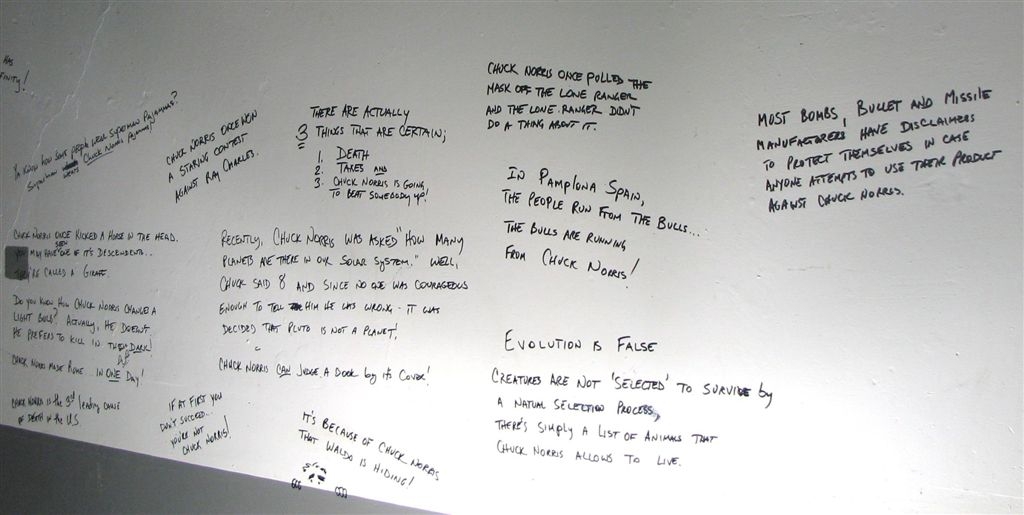 HAS
FINITY!
Do you know how some people wear Superman Pajammas?
Superman wears Chuck Norris Pajammas!
CHUCK NORRIS ONCE WON
A STARING CONTEST
AGAINST RAY CHARLES.
THERE ARE ACTUALLY
3 THINGS THAT ARE CERTAIN;
1. DEATH
2. TAXES AND
3. CHUCK NORRIS IS GOING
TO BEAT SOMEBODY UP!
CHUCK NORRIS ONCE PULLED THE
MASK OFF THE LONE RANGER
AND THE LONE RANGER DIDN'T
DO A THING ABOUT IT.
MOST BOMBS, BULLET AND MISSILE
MANUFACTORERS HAVE DISCLAIMERS
TO PROTECT THEMSELVES IN CASE
ANYONE ATTEMPTS TO USE THEIR PRODUCT
AGAINST CHUCK NORRIS.
IN PAMPLONA SPAIN,
THE PEOPLE RUN FROM THE BULLS...
THE BULLS ARE RUNNING
FROM CHUCK NORRIS!
CHUCK NORRIS ONCE KICKED A HORSE IN THE HEAD.
YOU MAY HAVE SEEN ONE OF IT'S DESCENDENTS..
THEY'RE CALLED A GIRAFFE.
DO YOU KNOW HOW CHUCK NORRIS CHANGES A
LIGHT BULB? ACTUALLY, HE DOESN'T
HE PREFERS TO KILL IN THE DARK!
CHUCK NORRIS MADE ROME... IN ONE DAY!
CHUCK NORRIS IS THE 3rd leading CAUSE
OF DEATH IN THE U.S.
RECENTLY, CHUCK NORRIS WAS ASKED "HOW MANY
PLANETS ARE THERE IN OUR SOLAR SYSTEM." WELL,
CHUCK SAID 8 AND SINCE NO ONE WAS COURAGEOUS
ENOUGH TO TELL HIM HE WAS WRONG - IT WAS
DECIDED THAT PLUTO IS NOT A PLANET!
CHUCK NORRIS CAN JUDGE A BOOK by its COVER!
IF AT FIRST YOU
DON'T SUCCEED...
YOU'RE NOT
CHUCK NORRIS!
IT'S BECAUSE OF CHUCK NORRIS
THAT WALDO IS HIDING!
EVOLUTION IS FALSE
CREATURES ARE NOT 'SELECTED' TO SURVIVE by
A NATURAL SELECTION PROCESS,
THERE'S SIMPLY A LIST OF ANIMALS THAT
CHUCK NORRIS ALLOWS TO LIVE.